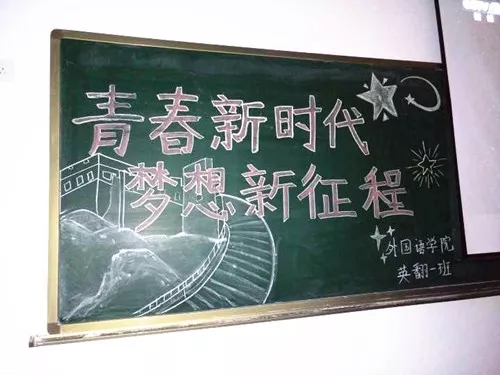 青春新时代
梦想新征程
外国语学院
英翻一班